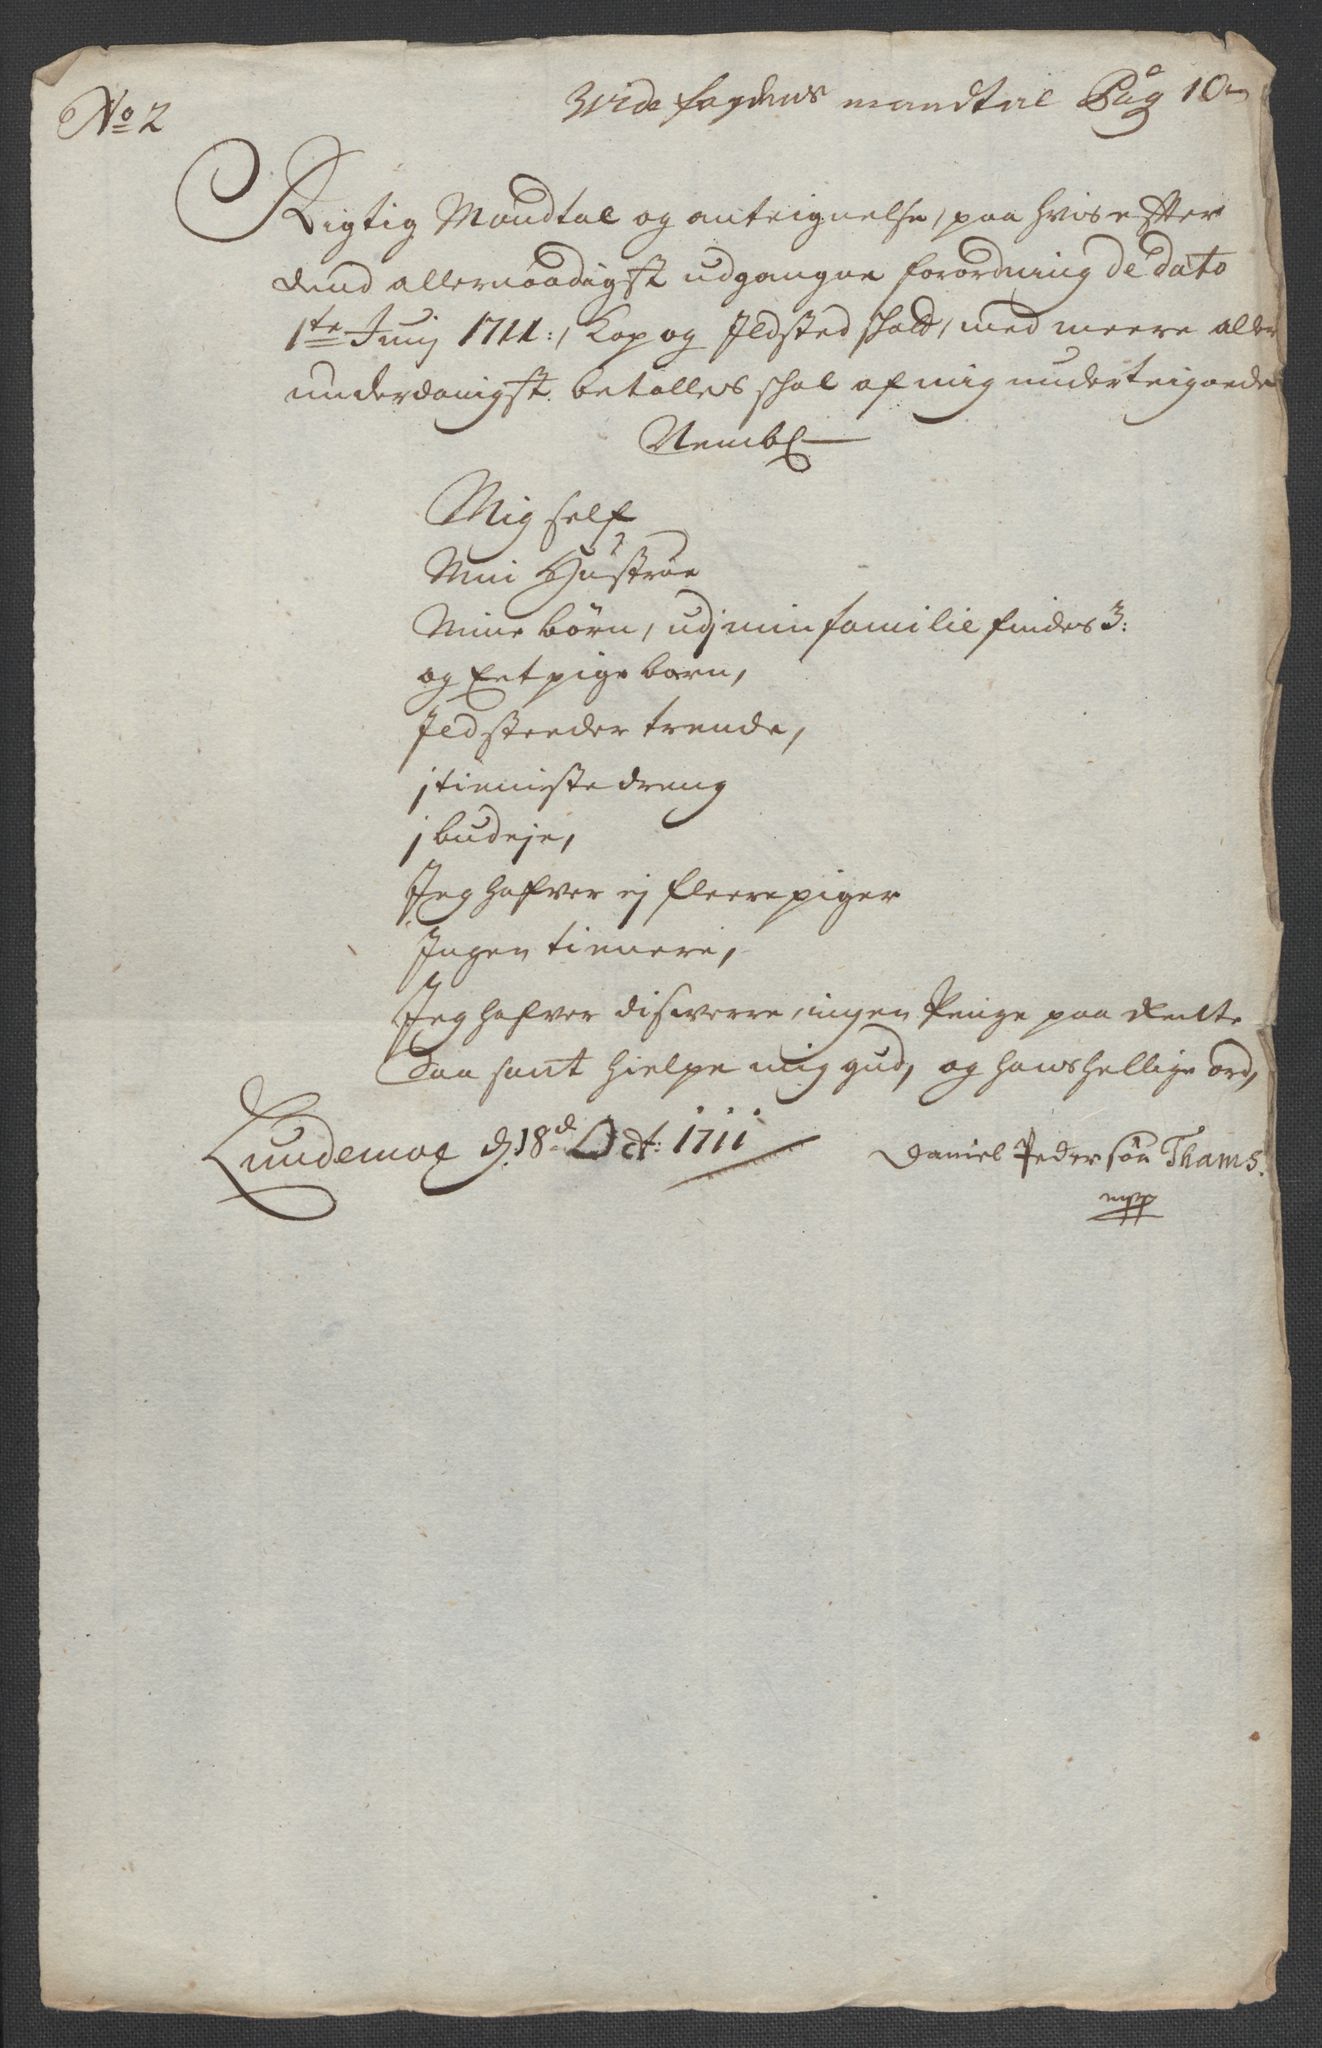 No 2
Vide fogdens mandtal Pag 10
Rigtig Mandtal og anteignelse, paa hvis efter
dend allernaadigst udgangne forordning de dato
1te Junij 1711:, Kop og Ildsted skatt, med meere aller
underdanigst betalles schal af mig underteignede
Nembl
Mig self
Min Hustrue
Mine børn, udj min familie findes 3:
og Eet pige barn,
Ildsteeder trende,
1 tieniste dreng
1 budeje,
Jeg hafver ej fleere piger
Ingen tienere,
Jeg hafver disverre, ingen Penge paa Rente
Saa sant hielpe mig gud, og hans hellige ord,
Lundemoe d. 18d Oct: 1711
Daniel Pedersøn Thams.
mpp